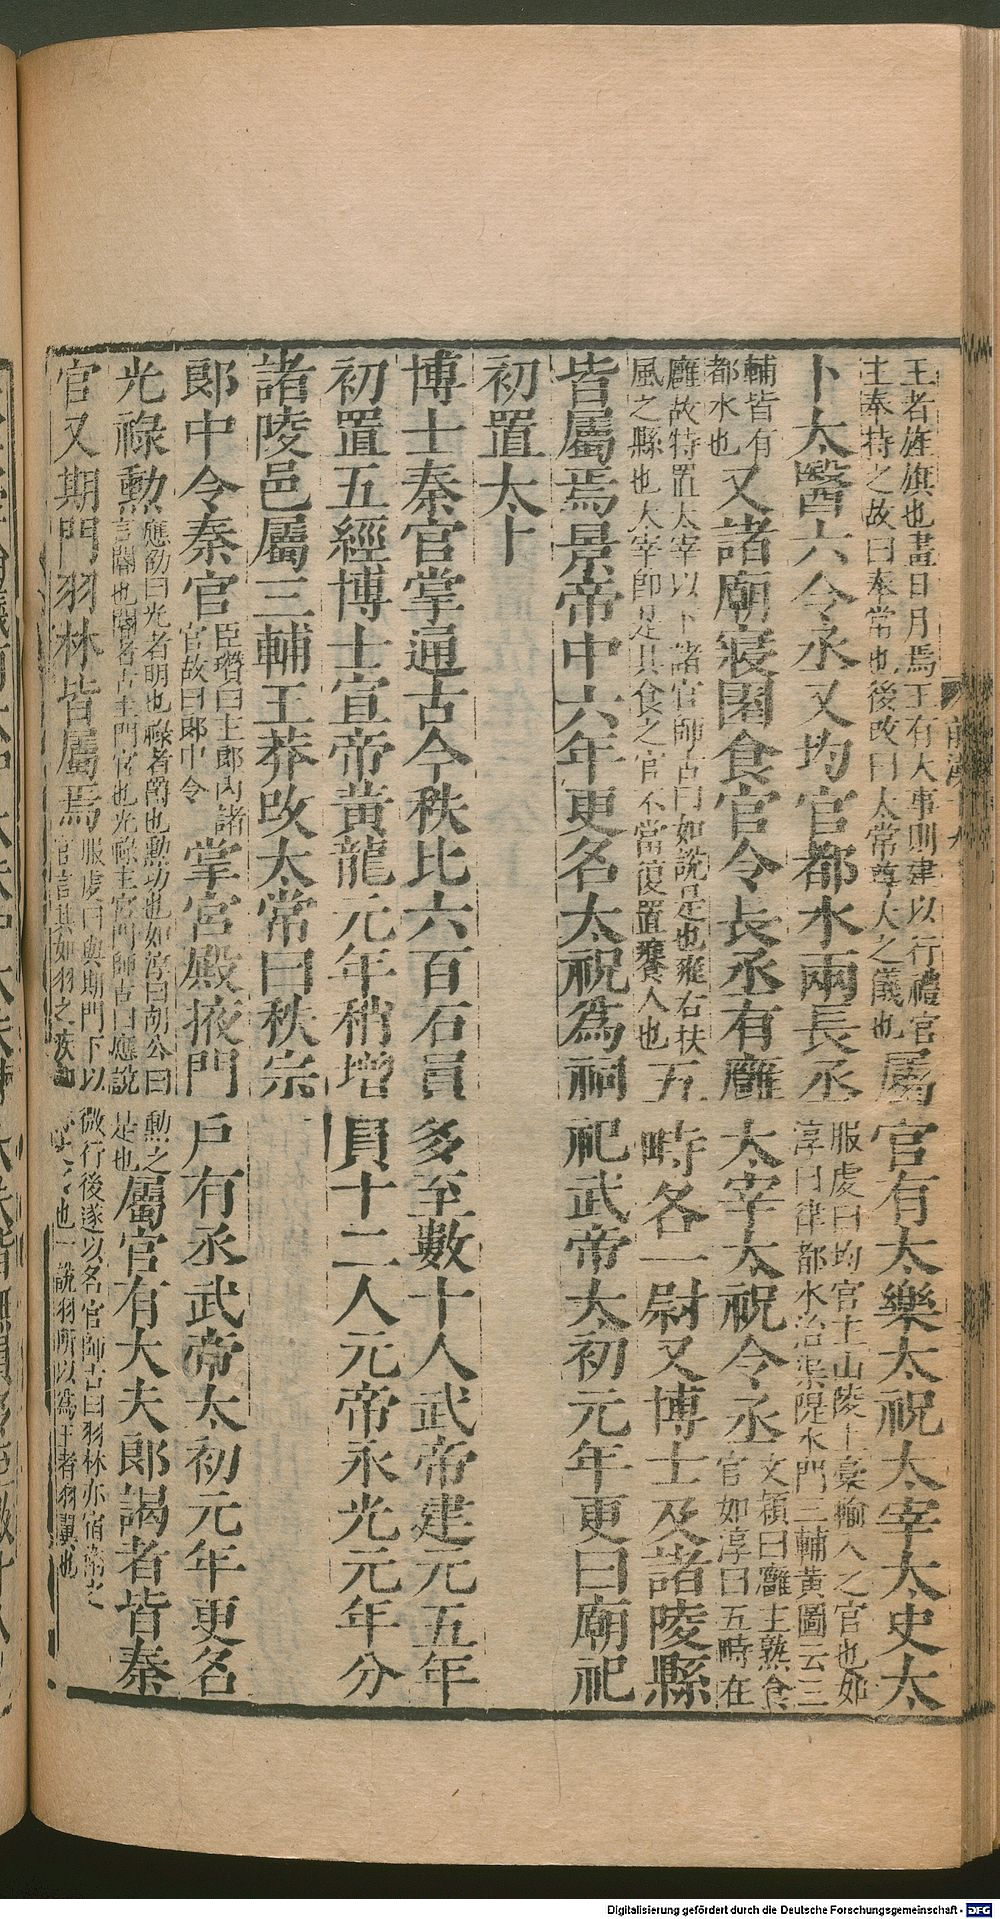 王者旌旗也畫日月焉王有大事則建以行禮官
主奉持之故曰奉常也後改曰太常尊大之儀也
屬官有太樂太祝太宰太史太
卜太醫六令丞又均官都水兩長丞
服虔曰均官主山陵上稾輸入之官也如
淳曰律都水治渠隄水門三輔黃圖云三
輔皆有
都水也
又諸廟寑園食官令長丞有廱太宰太祝令丞
文穎曰廱主熟食
官如淳曰五畤在
廱故特置太宰以下諸官師古曰如說是也雍右扶
風之縣也大宰即是具食之官不當復置饔人也
五畤各一尉又博士及諸陵縣
皆屬焉景帝中六年更名太祝為祠祀武帝太初元年更曰廟祀
初置太卜
博士秦官掌通古今秩比六百石員多至數十人武帝建元五年
初置五經博士宣帝黃龍元年稍增員十二人元帝永光元年分
諸陵邑屬三輔王莽改太常曰秩宗
郎中令秦官
臣瓚曰主郎內諸
官故曰郎中令
掌宮殿掖門戶有丞武帝太初元年更名
光祿勳
應劭曰光者明也祿者爵也勳功也如淳曰胡公曰勳之
言閽也閽者古主門官也光祿主宮門師古曰應說是也
屬官有大夫郎謁者皆秦
官又期門羽林皆屬焉
服虔曰與期門下以微行後遂以名官師古曰羽林亦宿衞之
官言其如羽之疾也一說羽所以為王者羽翼也
前漢十九
Digitalisierung gefördert durch die Deutsche Forschungsgemeinschaft - DFG